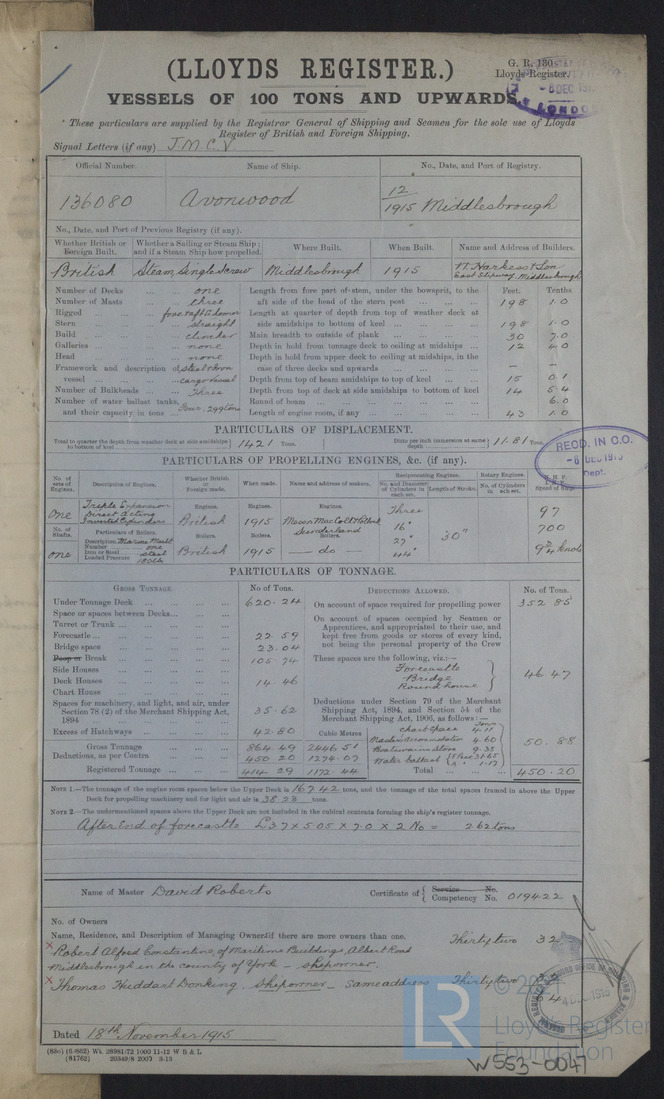 (LLOYDS REGISTER.)
G. R. 130
Lloyds Register.
-8 DEC 191
LONDO
VESSELS OF 100 TONS AND UPWARDS.
These particulars are supplied by the Registrar General of Shipping and Seamen for the sole use of Lloyds
Register of British and Foreign Shipping.
Signal Letters (if any) J.M.C.V
Official Number. Name of Ship. No., Date, and Port of Registry.
136080 Avonwood 12/1915 Middlesbrough
No., Date, and Port of Previous Registry (if any).
Whether British or Foreign Built. Whether a Sailing or Steam Ship; and if a Steam Ship how propelled. Where Built. When Built. Name and Address of Builders.
British Steam, Single Screw Middlesbrough 1915 W. Harkess & Son East Slipway, Middlesbrough
Number of Decks one Length from fore part of stem, under the bowsprit, to the Feet. Tenths
Number of Masts three aft side of the head of the stern post 198 1.0
Rigged fore & aft Schooner Length at quarter of depth from top of weather deck at
Stern straight side amidships to bottom of keel 198 1.0
Build clincher Main breadth to outside of plank 30 7.0
Galleries none Depth in hold from tonnage deck to ceiling at midships 12 4.0
Head none Depth in hold from upper deck to ceiling at midships, in the
Framework and description of steel & iron case of three decks and upwards — —
vessel cargo vessel Depth from top of beam amidships to top of keel 15 0.1
Number of Bulkheads Three Depth from top of deck at side amidships to bottom of keel 14 5.4
Number of water ballast tanks, Round of beam 6.0
and their capacity in tons Four. 299 tons Length of engine room, if any 43 1.0
PARTICULARS OF DISPLACEMENT.
Total to quarter the depth from weather deck at side amidships to bottom of keel 1421 Tons. Ditto per inch immersion at same depth 11.81 Tons
RECD. IN C.O.
-8 DEC 1915
Dept.
PARTICULARS OF PROPELLING ENGINES, &c. (if any).
No. of sets of Engines. Description of Engines. Whether British or Foreign made. When made. Name and address of makers. Reciprocating Engines. Rotary Engines.
No. and Diameter of Cylinders in each set. Length of Stroke. No. of Cylinders in each set.
one Triple Expansion Direct Acting Inverted Cylinders Engines. British Engines. 1915 Engines. Three 97
No. of Shafts. Particulars of Boilers. Boilers. Boilers. Sunderland Boilers. 16" 30" 700
one Description Marine Mult Number one Iron or Steel steel Loaded Pressure 180 lbs British 1915 — do — 27" 44" 9 3/4 knots
PARTICULARS OF TONNAGE.
GROSS TONNAGE. No. of Tons. DEDUCTIONS ALLOWED. No. of Tons.
Under Tonnage Deck 620.24 On account of space required for propelling power 352.85
Space or spaces between Decks On account of spaces occupied by Seamen or
Turret or Trunk Apprentices, and appropriated to their use, and
Forecastle 22.59 kept free from goods or stores of every kind,
Bridge space 23.04 not being the personal property of the Crew
Poop or Break 105.74 These spaces are the following, viz.:—
Side Houses Forecastle
Deck Houses 14.46 Bridge 46.47
Chart House Round house
Spaces for machinery, and light, and air, under Section 78 (2) of the Merchant Shipping Act, 1894 35.62 Deductions under Section 79 of the Merchant Shipping Act, 1894, and Section 54 of the Merchant Shipping Act, 1906, as follows:—
Excess of Hatchways 42.80 Cubic Metres Chart space 4.11
Gross Tonnage 864.49 2446.51 Master's accommodation 4.60 50.88
Deductions, as per Contra 450.20 1274.07 Boatswain's store 9.35
Registered Tonnage 414.29 1172.44 Water ballast 31.65 1.17
Total 450.20
NOTE 1.—The tonnage of the engine room spaces below the Upper Deck is 167.42 tons, and the tonnage of the total spaces framed in above the Upper
Deck for propelling machinery and for light and air is 38.23 tons.
NOTE 2.—The undermentioned spaces above the Upper Deck are not included in the cubical contents forming the ship's register tonnage.
After End of forecastle 3.7 x 5.05 x 7.0 x 2 No = 2.62 tons
Name of Master David Roberts Certificate of Service No. Competency No. 019422
No. of Owners
Name, Residence, and Description of Managing Owner if there are more owners than one.
x Robert Alfred Constantine, of Maritime Buildings, Albert Road Thirty two 32
Middlesbrough in the county of York — shipowner.
x Thomas Huddart Donking. Shipowner — same address Thirty two 32
64
4 DEC 1915
Dated 18th November 1915
(83o) (6/862) Wt. 28981/72 1000 11-12 W B & L
(81762) 20349/8 2007 3-13
LR
© 2021
Lloyd's Register
Foundation
W553-0047